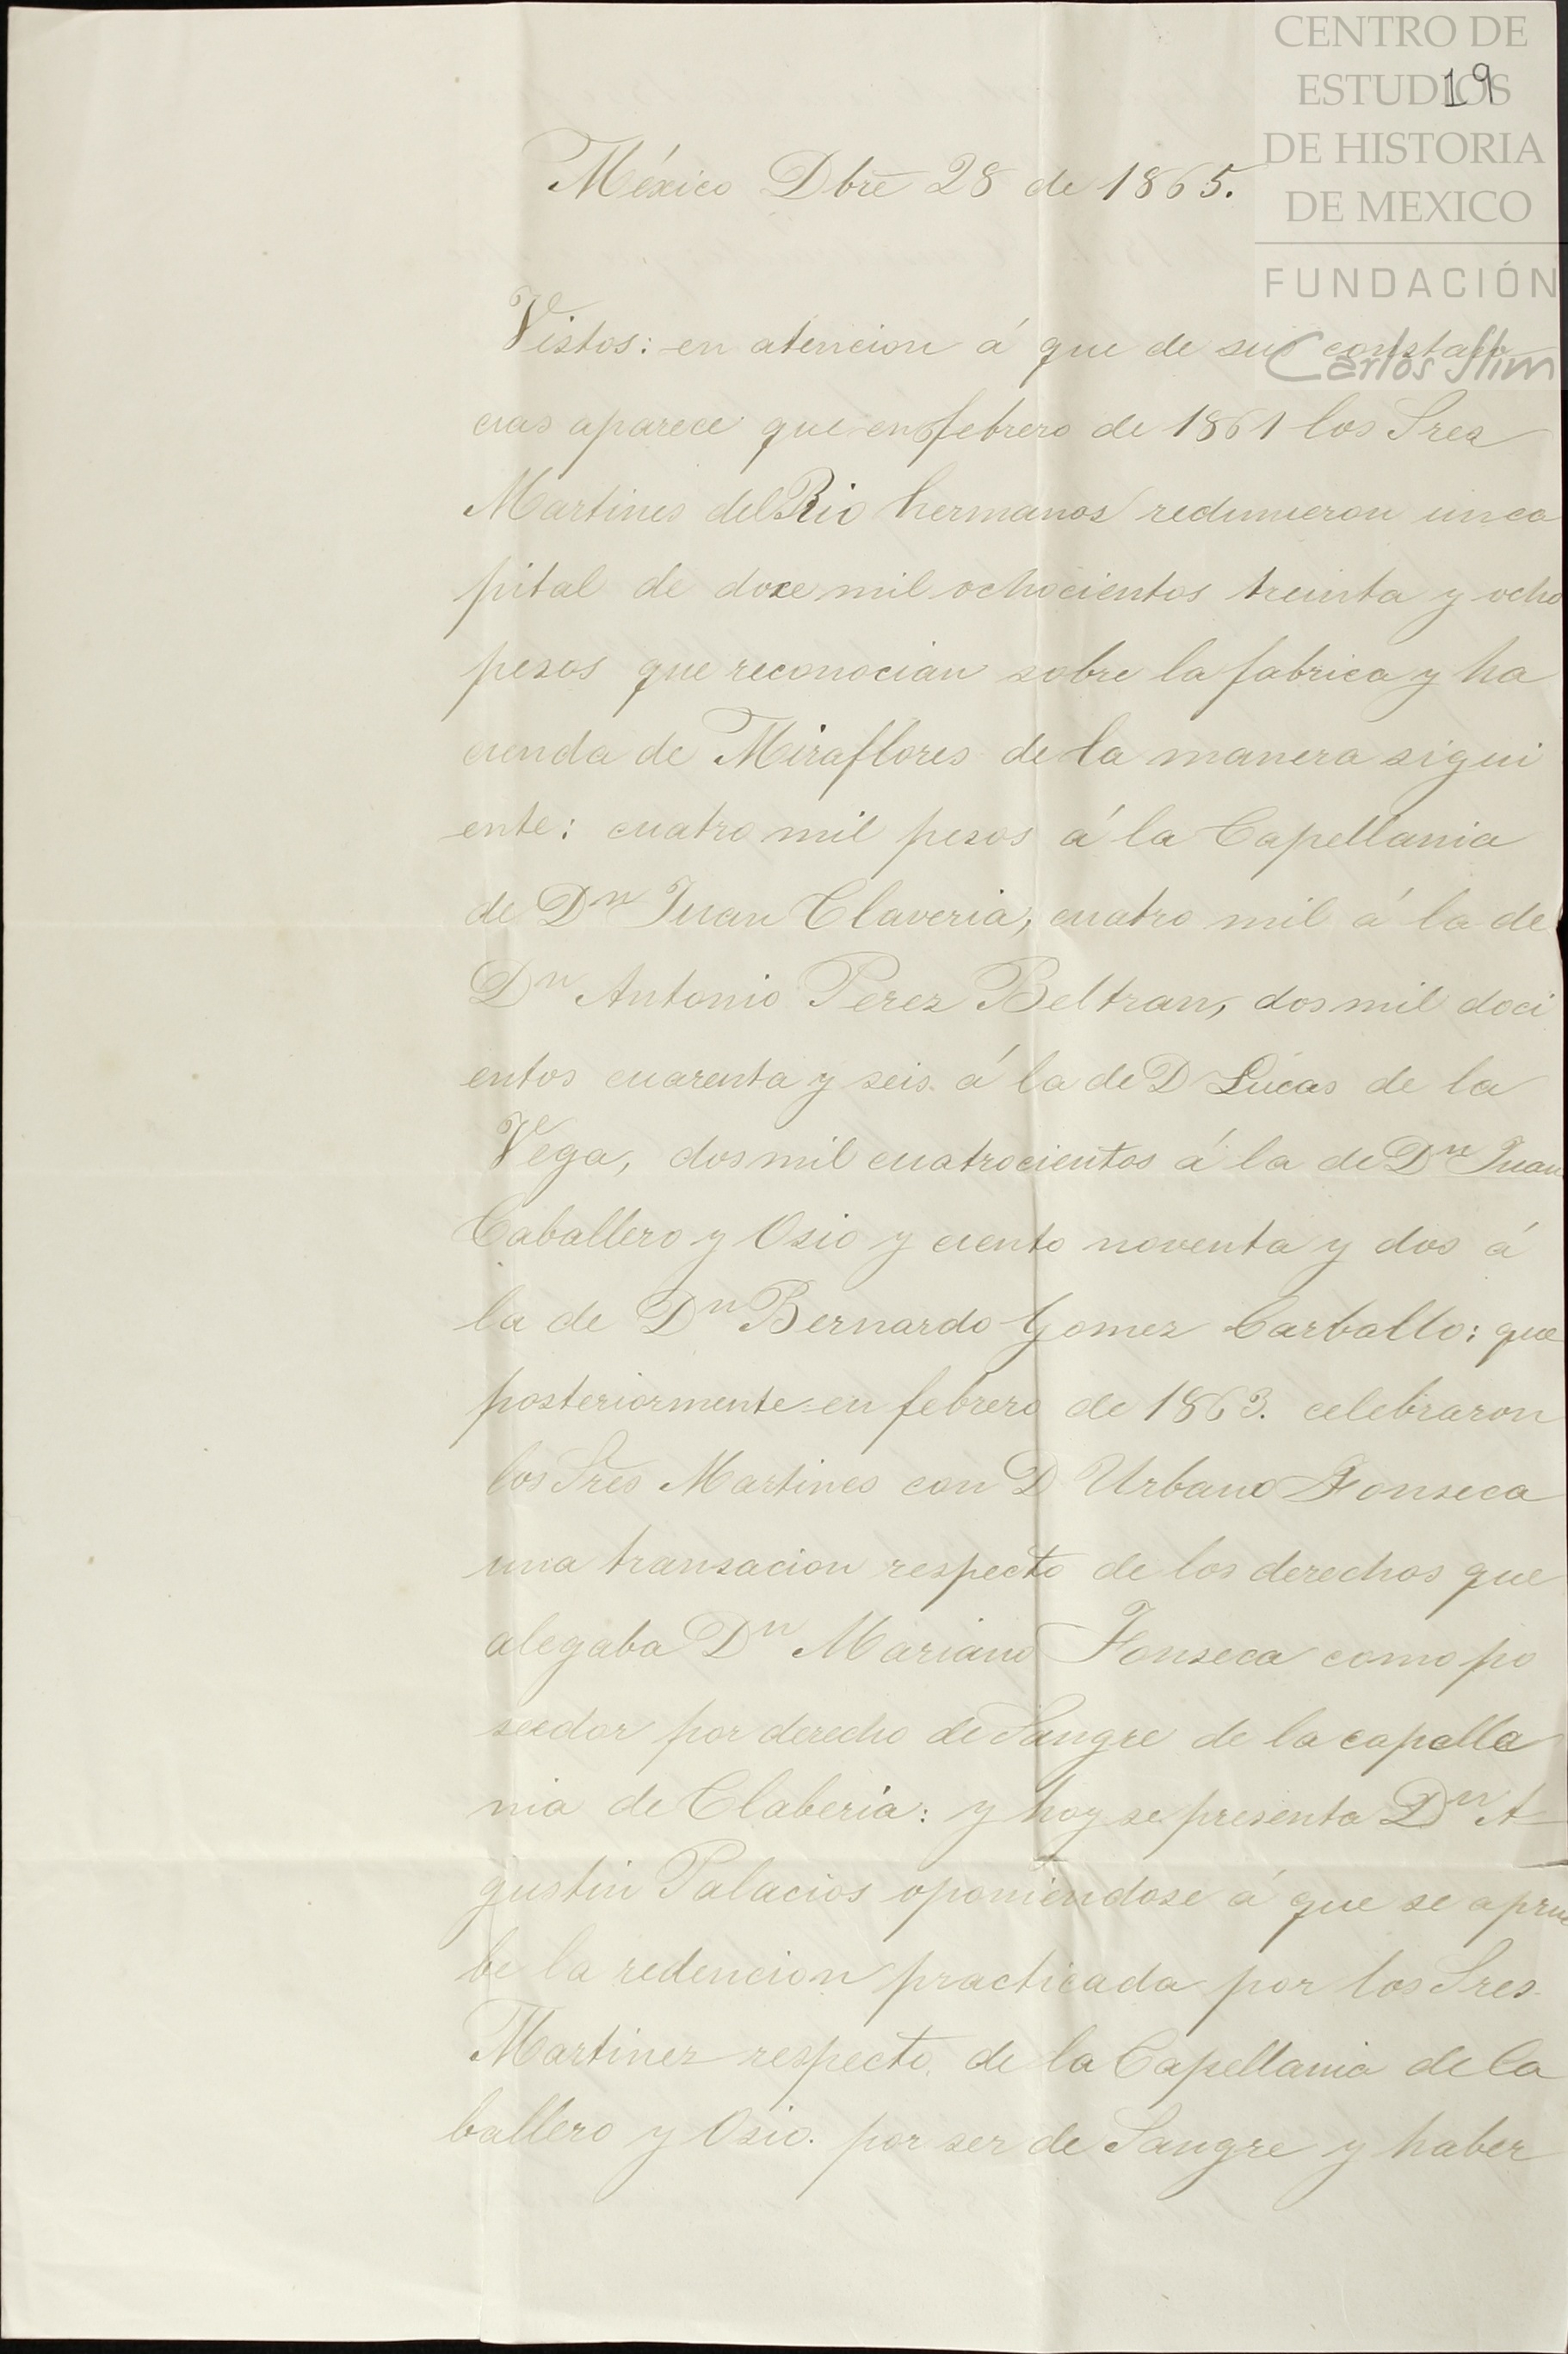 CENTRO DE
ESTUDIOS
19
DE HISTORIA
DE MEXICO
FUNDACIÓN
Carlos Slim
México Dbre 28 de 1865.
Vistos: en atencion á que de sus constan
cias aparece que en febrero de 1861 los Sres
Martines del Rio hermanos redimieron un ca
pital de doce mil ochocientos treinta y ocho
pesos que reconocian sobre la fabrica y ha
cienda de Miraflores de la manera sigui
ente: cuatro mil pesos á la Capellania
de Dn Juan Claveria, cuatro mil á la de
Dn Antonio Perez Beltran, dos mil doci
entos cuarenta y seis á la de D Lucas de la
Vega, dos mil cuatrocientos á la de Dn Juan
Caballero y Osio y ciento noventa y dos á
la de Dn Bernardo Gomez Carballo: que
posteriormente en febrero de 1863. celebraron
los Sres Martines con D Urbano Fonseca
una transacion respecto de los derechos que
alegaba Dn Mariano Fonseca como po
seedor por derecho de Sangre de la capella
nia de Claberia: y hoy se presenta Dn A
gustin Palacios oponiendose á que se aprue
be la redencion practicada por los Sres
Martinez respecto de la Capellania de Ca
ballero y Osio. por ser de Sangre y haber